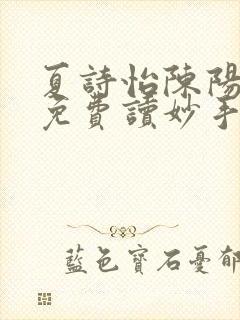 夏詩怡陳陽
免費讀妙手
藍色寶石憂郁